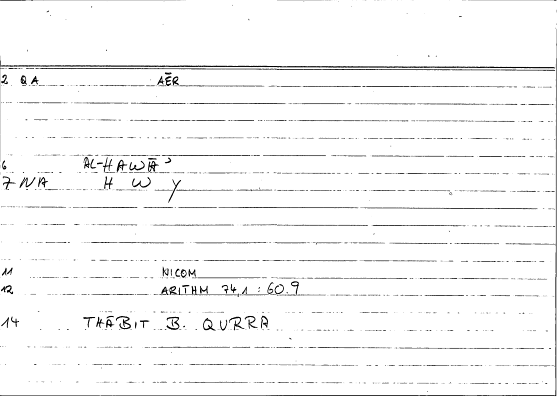 2 QA AĒR
6 AL-HAWĀʾ
7 NA H W Y
11 NICOM
12 ARITHM 74,1 : 60.9
14 THĀBIT B. QURRA